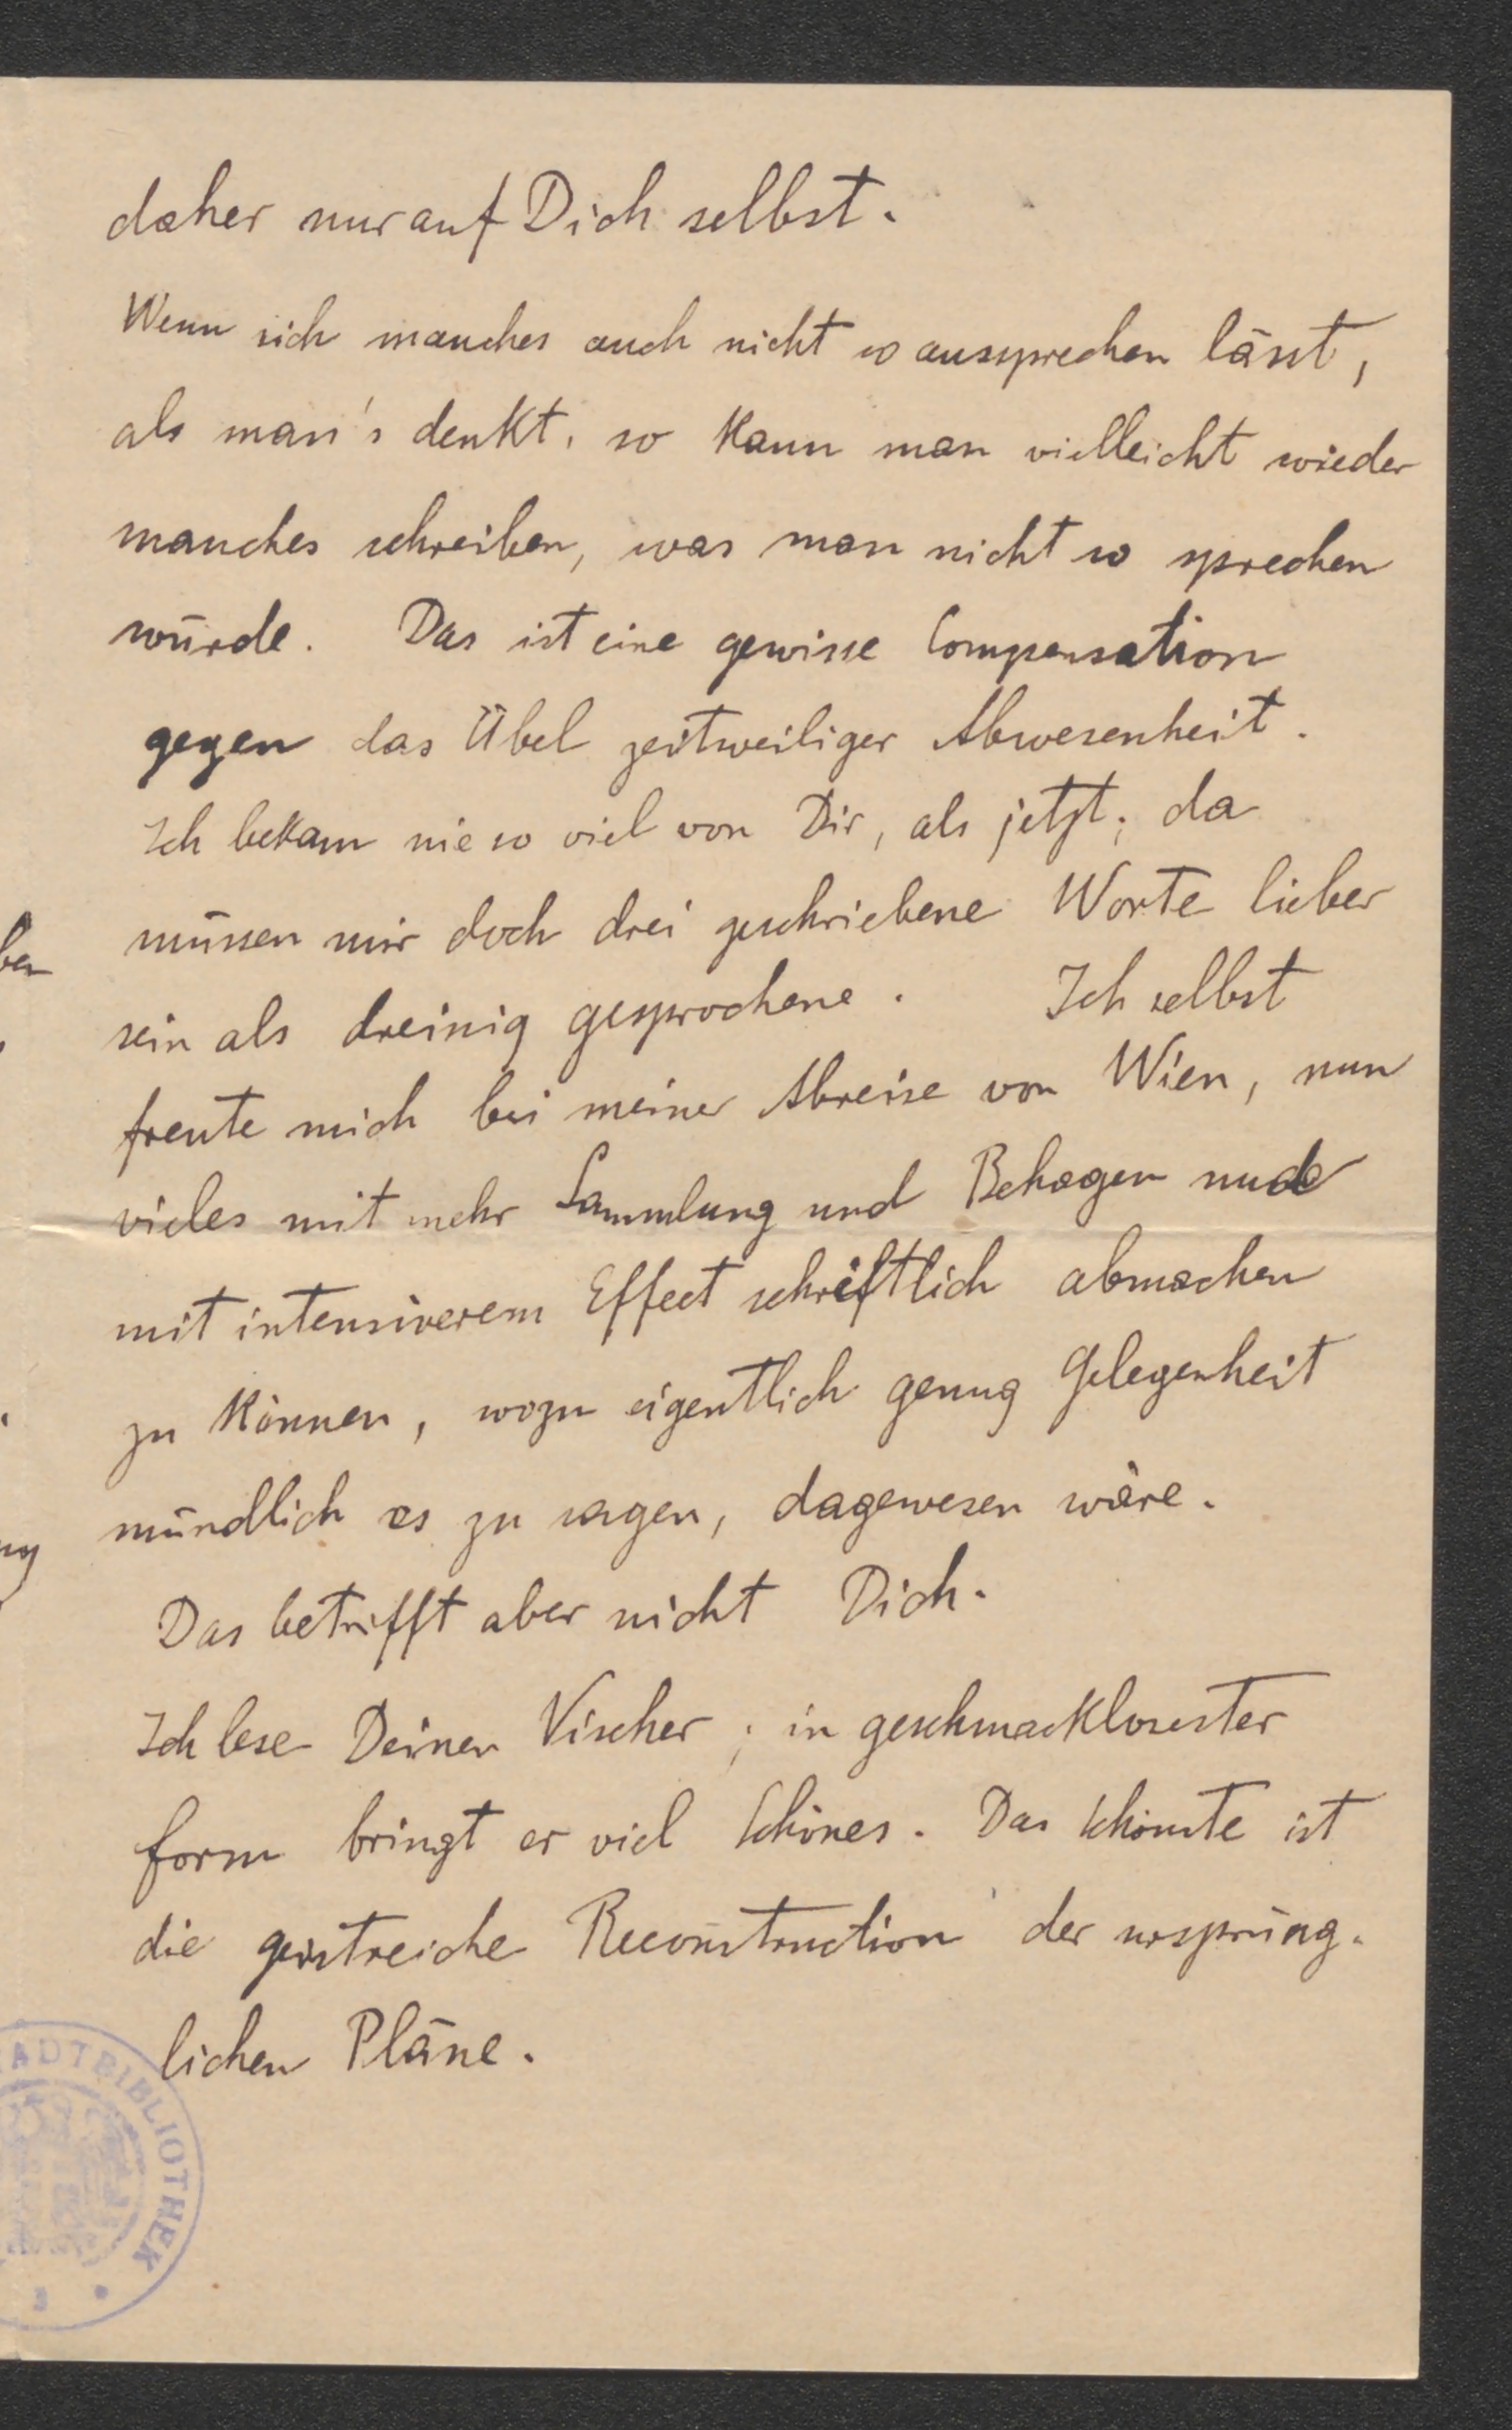 daher nur auf Dich selbst.
Wenn sich manches auch nicht so aussprechen lässt,
als man's denkt, so kann man vielleicht wieder
manches schreiben, was man nicht so sprechen
würde. Das ist eine gewisse Compensation
gegen das Übel zeitweiliger Abwesenheit.
Ich bekam nie so viel von Dir, als jetzt; da
müssen mir doch drei geschriebene Worte lieber
sein als dreissig gesprochene. Ich selbst
freute mich bei meiner Abreise von Wien, nun
vieles mit mehr Sammlung und Behagen und
mit intensiverem Effect schriftlich abmachen
zu können, wozu eigentlich genug Gelegenheit
mündlich es zu sagen, dagewesen wäre.
Das betrifft aber nicht Dich.
Ich lese Deinen Vischer; in geschmacklosester
Form bringt er viel Schönes. Das Schönste ist
die geistreiche Reconstruction der ursprüng-
lichen Pläne.
STADTBIBLIOTHEK